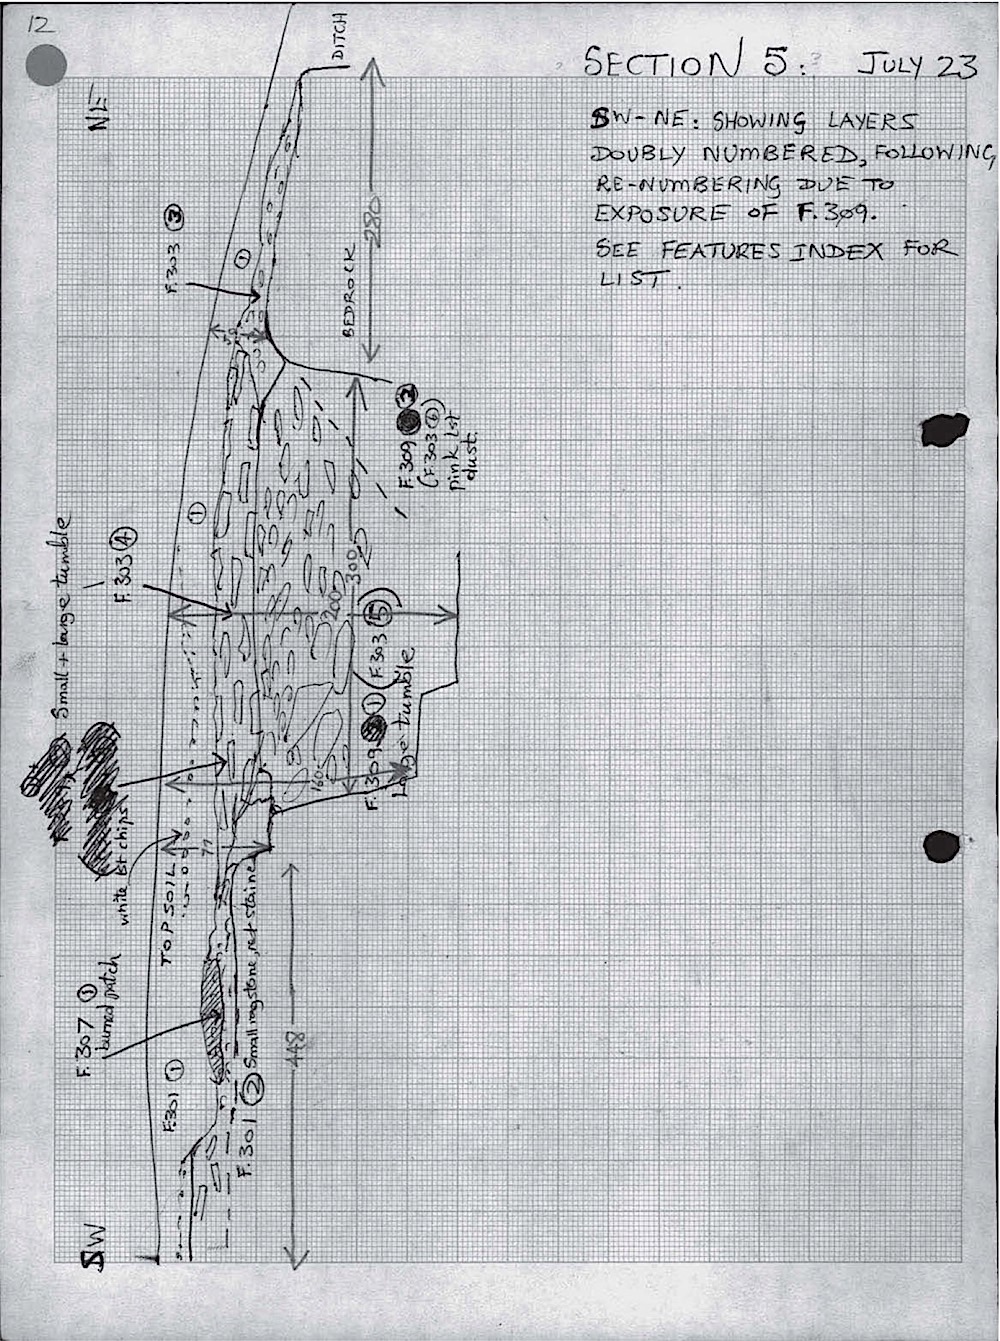 12
SECTION 5: JULY 23
SW-NE: SHOWING LAYERS
DOUBLY NUMBERED, FOLLOWING
RE-NUMBERING DUE TO
EXPOSURE OF F.309.
SEE FEATURES INDEX FOR
LIST.
NE
DITCH
F.303 ③
①
BEDROCK
280
F.309 ②
(F.303 ⑥)
pink lst
dust.
①
F.303 ④
Small + large tumble
300
200
F.309 ①
(F.303 ⑤)
Large tumble
160
77
white lst chips
TOP SOIL
F.307 ①
burned patch
F.301 ①
F.301 ② Small ragstone, net staine
448
SW